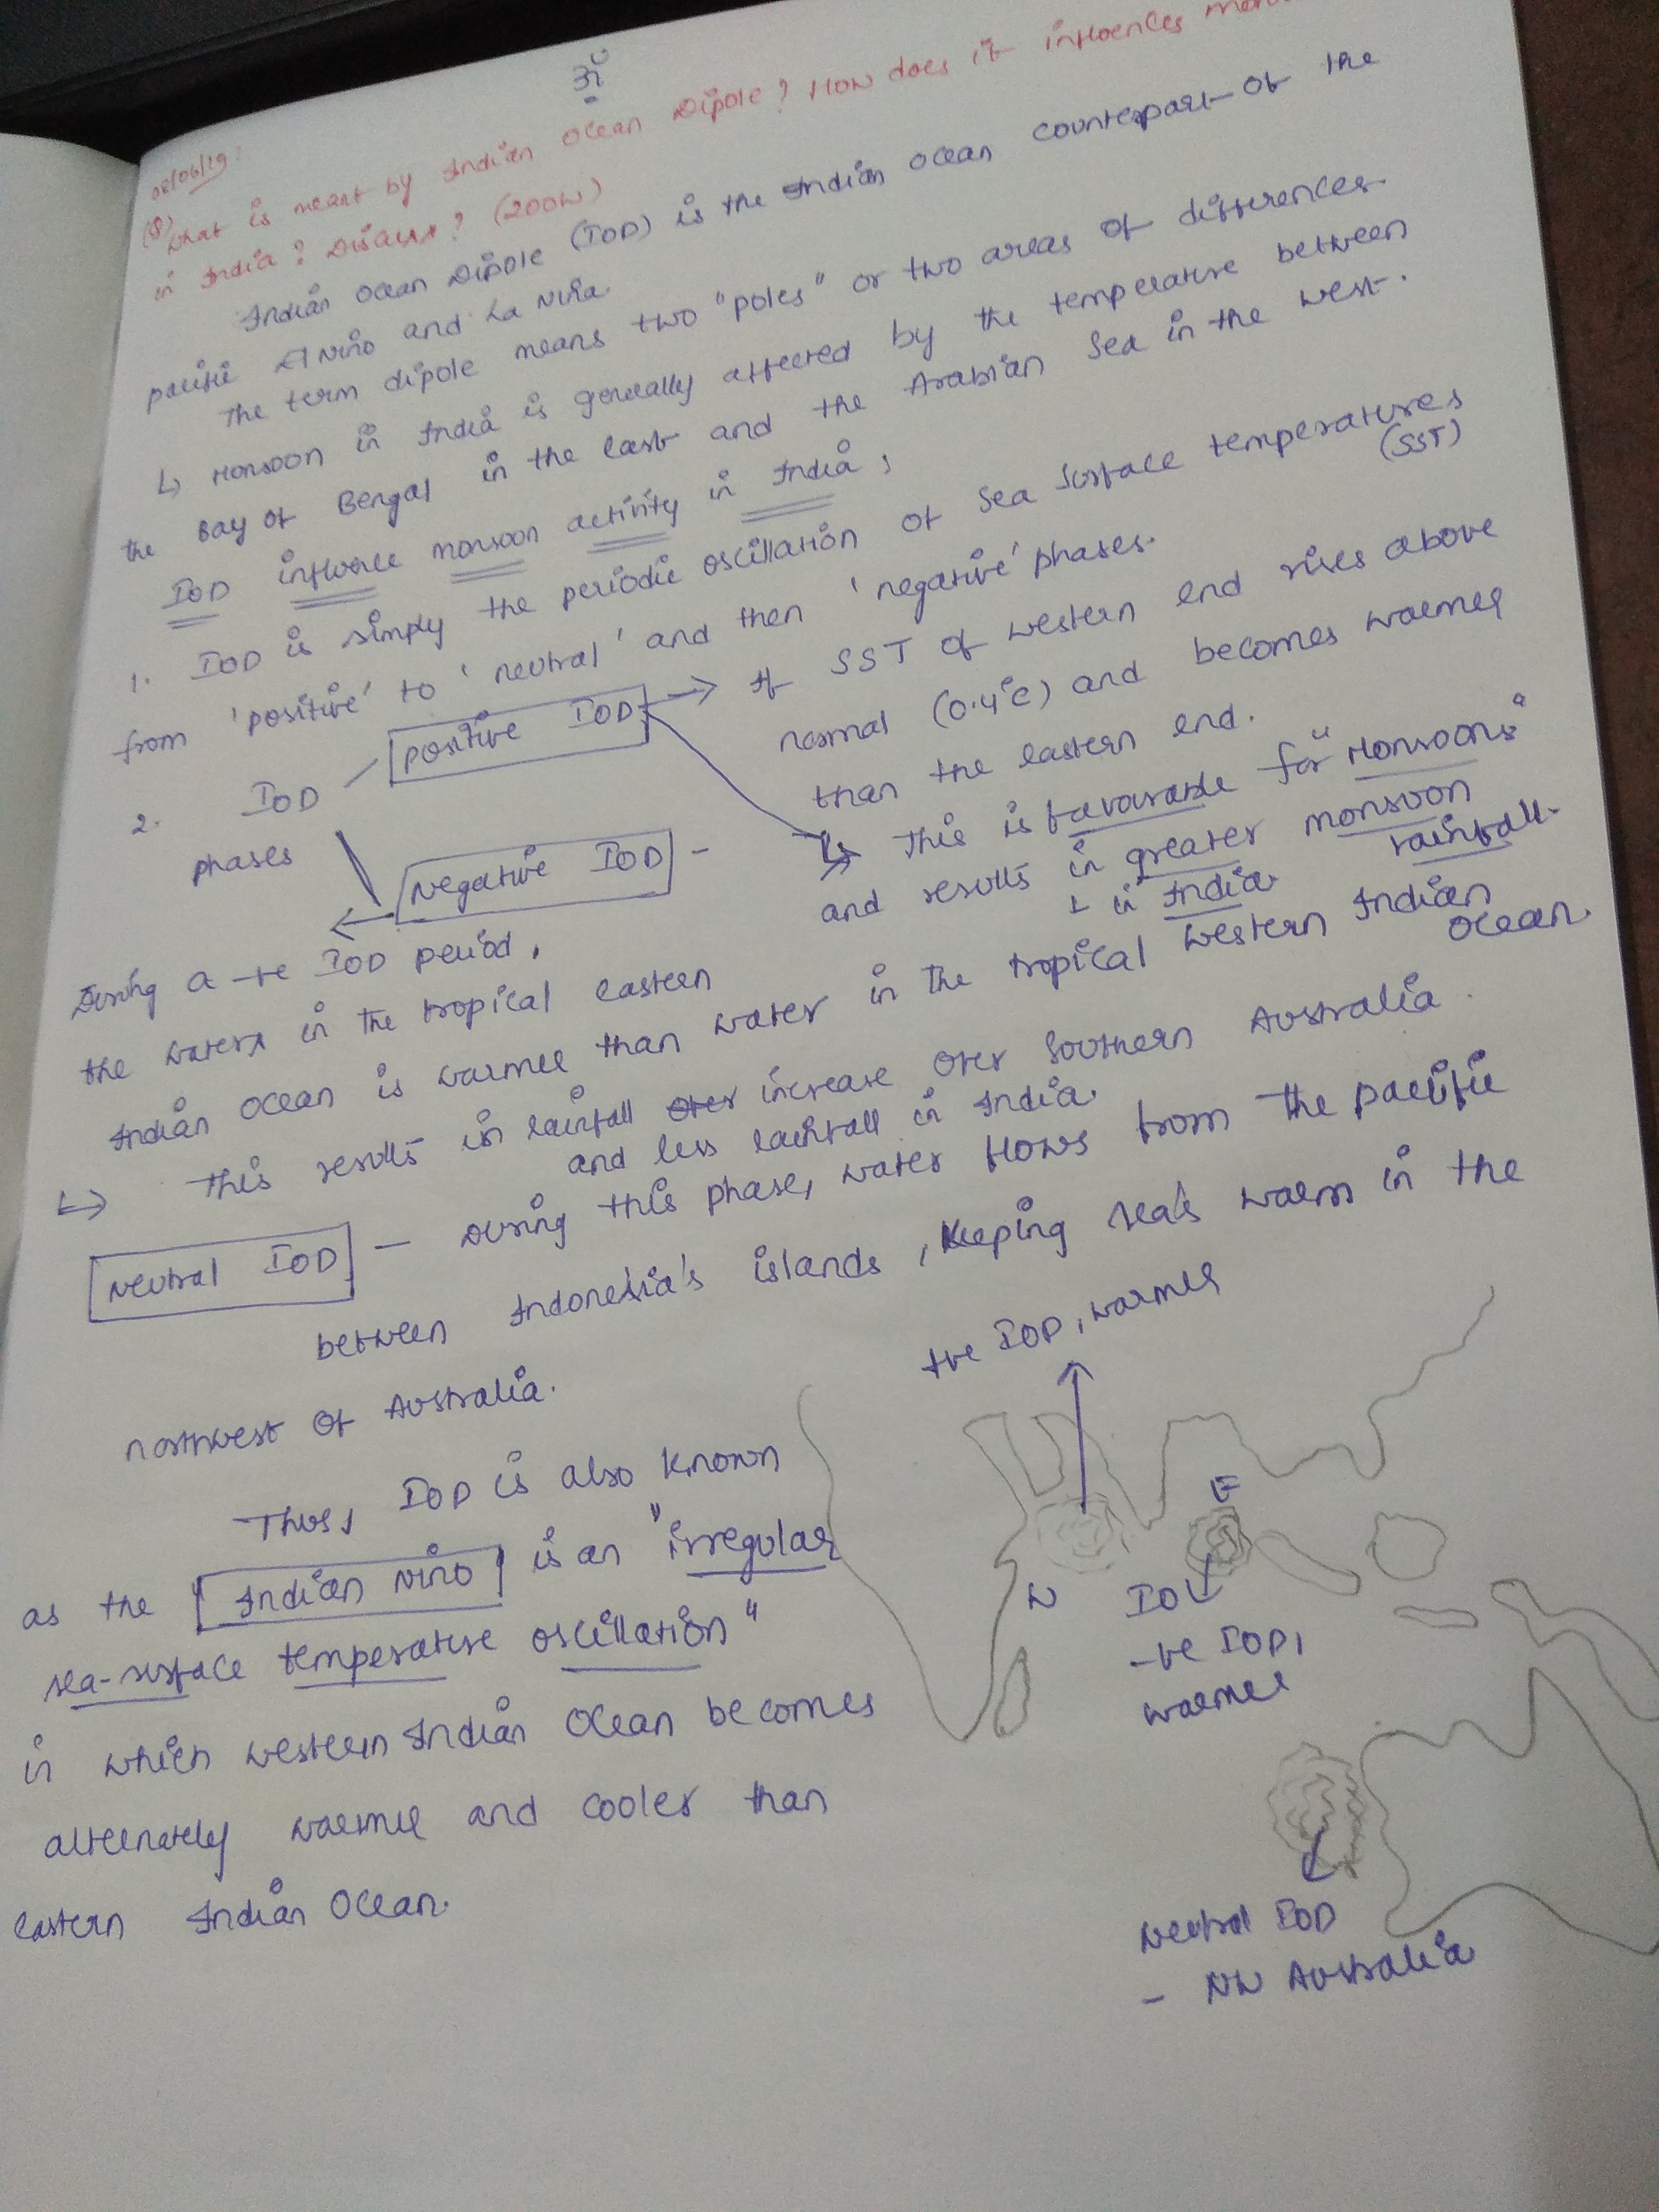 ॐ
08/06/19:
(Q) What is meant by Indian Ocean Dipole? How does it influences
in India? Discuss? (200W)
Indian Ocean Dipole (IOD) is the Indian Ocean counterpart of the
pacific El Nino and La Nina.
The term dipole means two "poles" or two areas of differences.
↳ Monsoon in India is generally affected by the temperature between
the Bay of Bengal in the east and the Arabian Sea in the west.
IOD influence monsoon activity in India;
1. IOD is simply the periodic oscillation of sea surface temperatures
(SST)
from 'positive' to 'neutral' and then 'negative' phases.
2. IOD phases
positive IOD → If SST of western end rises above
normal (0.4°C) and becomes warmer
than the eastern end.
↳ This is favourable for "Monsoons"
and results in greater monsoon
rainfall.
in India
Negative IOD -
During a -ve IOD period,
the waters in the tropical eastern
Indian Ocean is warmer than water in the tropical western Indian
Ocean.
↳ This results in rainfall increase over Southern Australia.
and less rainfall in India.
Neutral IOD - During this phase, water flows from the pacific
between Indonesia's islands, keeping seas warm in the
northwest of Australia.
Thus, IOD is also known
as the Indian Nino is an "irregular
sea-surface temperature oscillation"
in which western Indian Ocean becomes
alternately warmer and cooler than
eastern Indian Ocean.
+ve IOD, warmer
E
W IO
-ve IOD,
warmer
Neutral IOD
- NW Australia